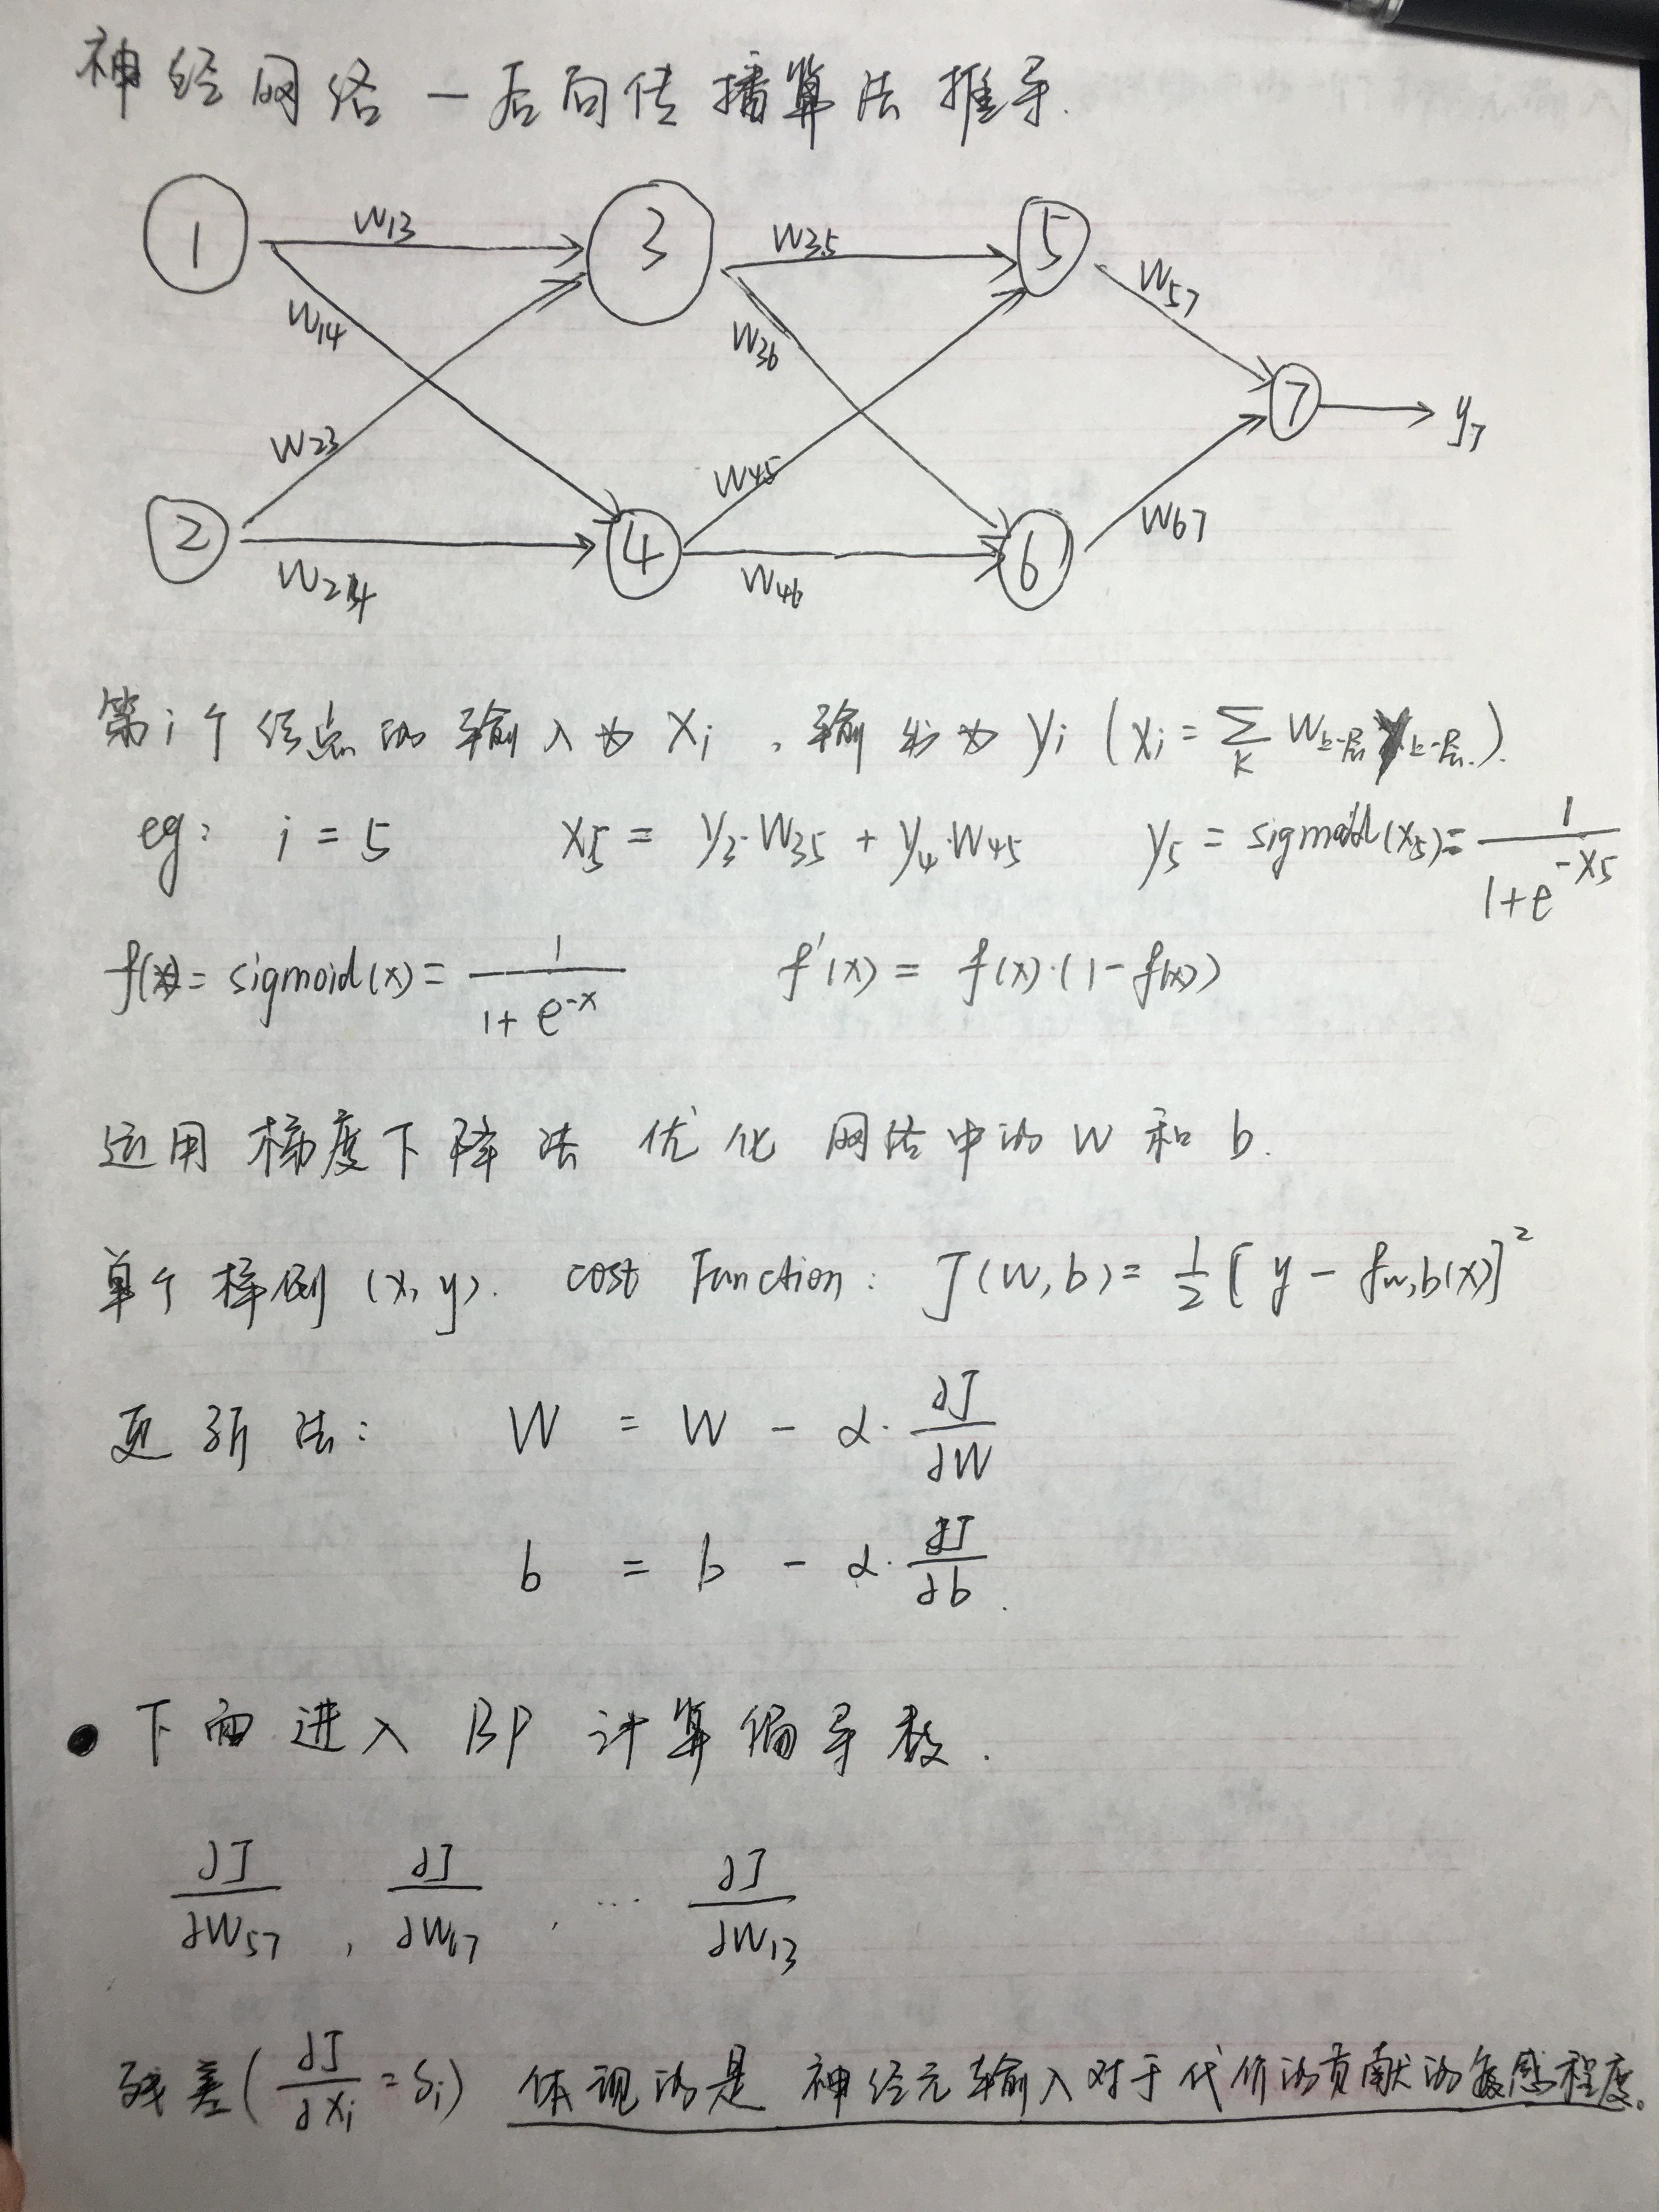 神经网络-后向传播算法推导.
1 W13 3 W35 5 W57
W14 W36
7 y7
W23 W45 W67
2 W24 4 W46 6
第i个结点的输入为 Xi , 输出为 yi (xi = ∑k W上一层 y上一层.).
eg: i = 5 x5 = y3·W35 + y4·W45 y5 = sigmoid(x5) = 1/(1+e^-x5)
f(x) = sigmoid(x) = 1/(1+e^-x) f'(x) = f(x)·(1-f(x))
运用梯度下降法 优化 网络中的 W 和 b.
单个样例 (x, y). cost Function: J(W,b) = 1/2 [y - fw,b(x)]²
更新法: W = W - α·∂J/∂W
b = b - α·∂J/∂b.
• 下面进入 BP 计算偏导数.
∂J/∂W57 , ∂J/∂W67 , ... ∂J/∂W13
残差(∂J/∂xi = δi) 体现的是 神经元输入对于代价的贡献的敏感程度。